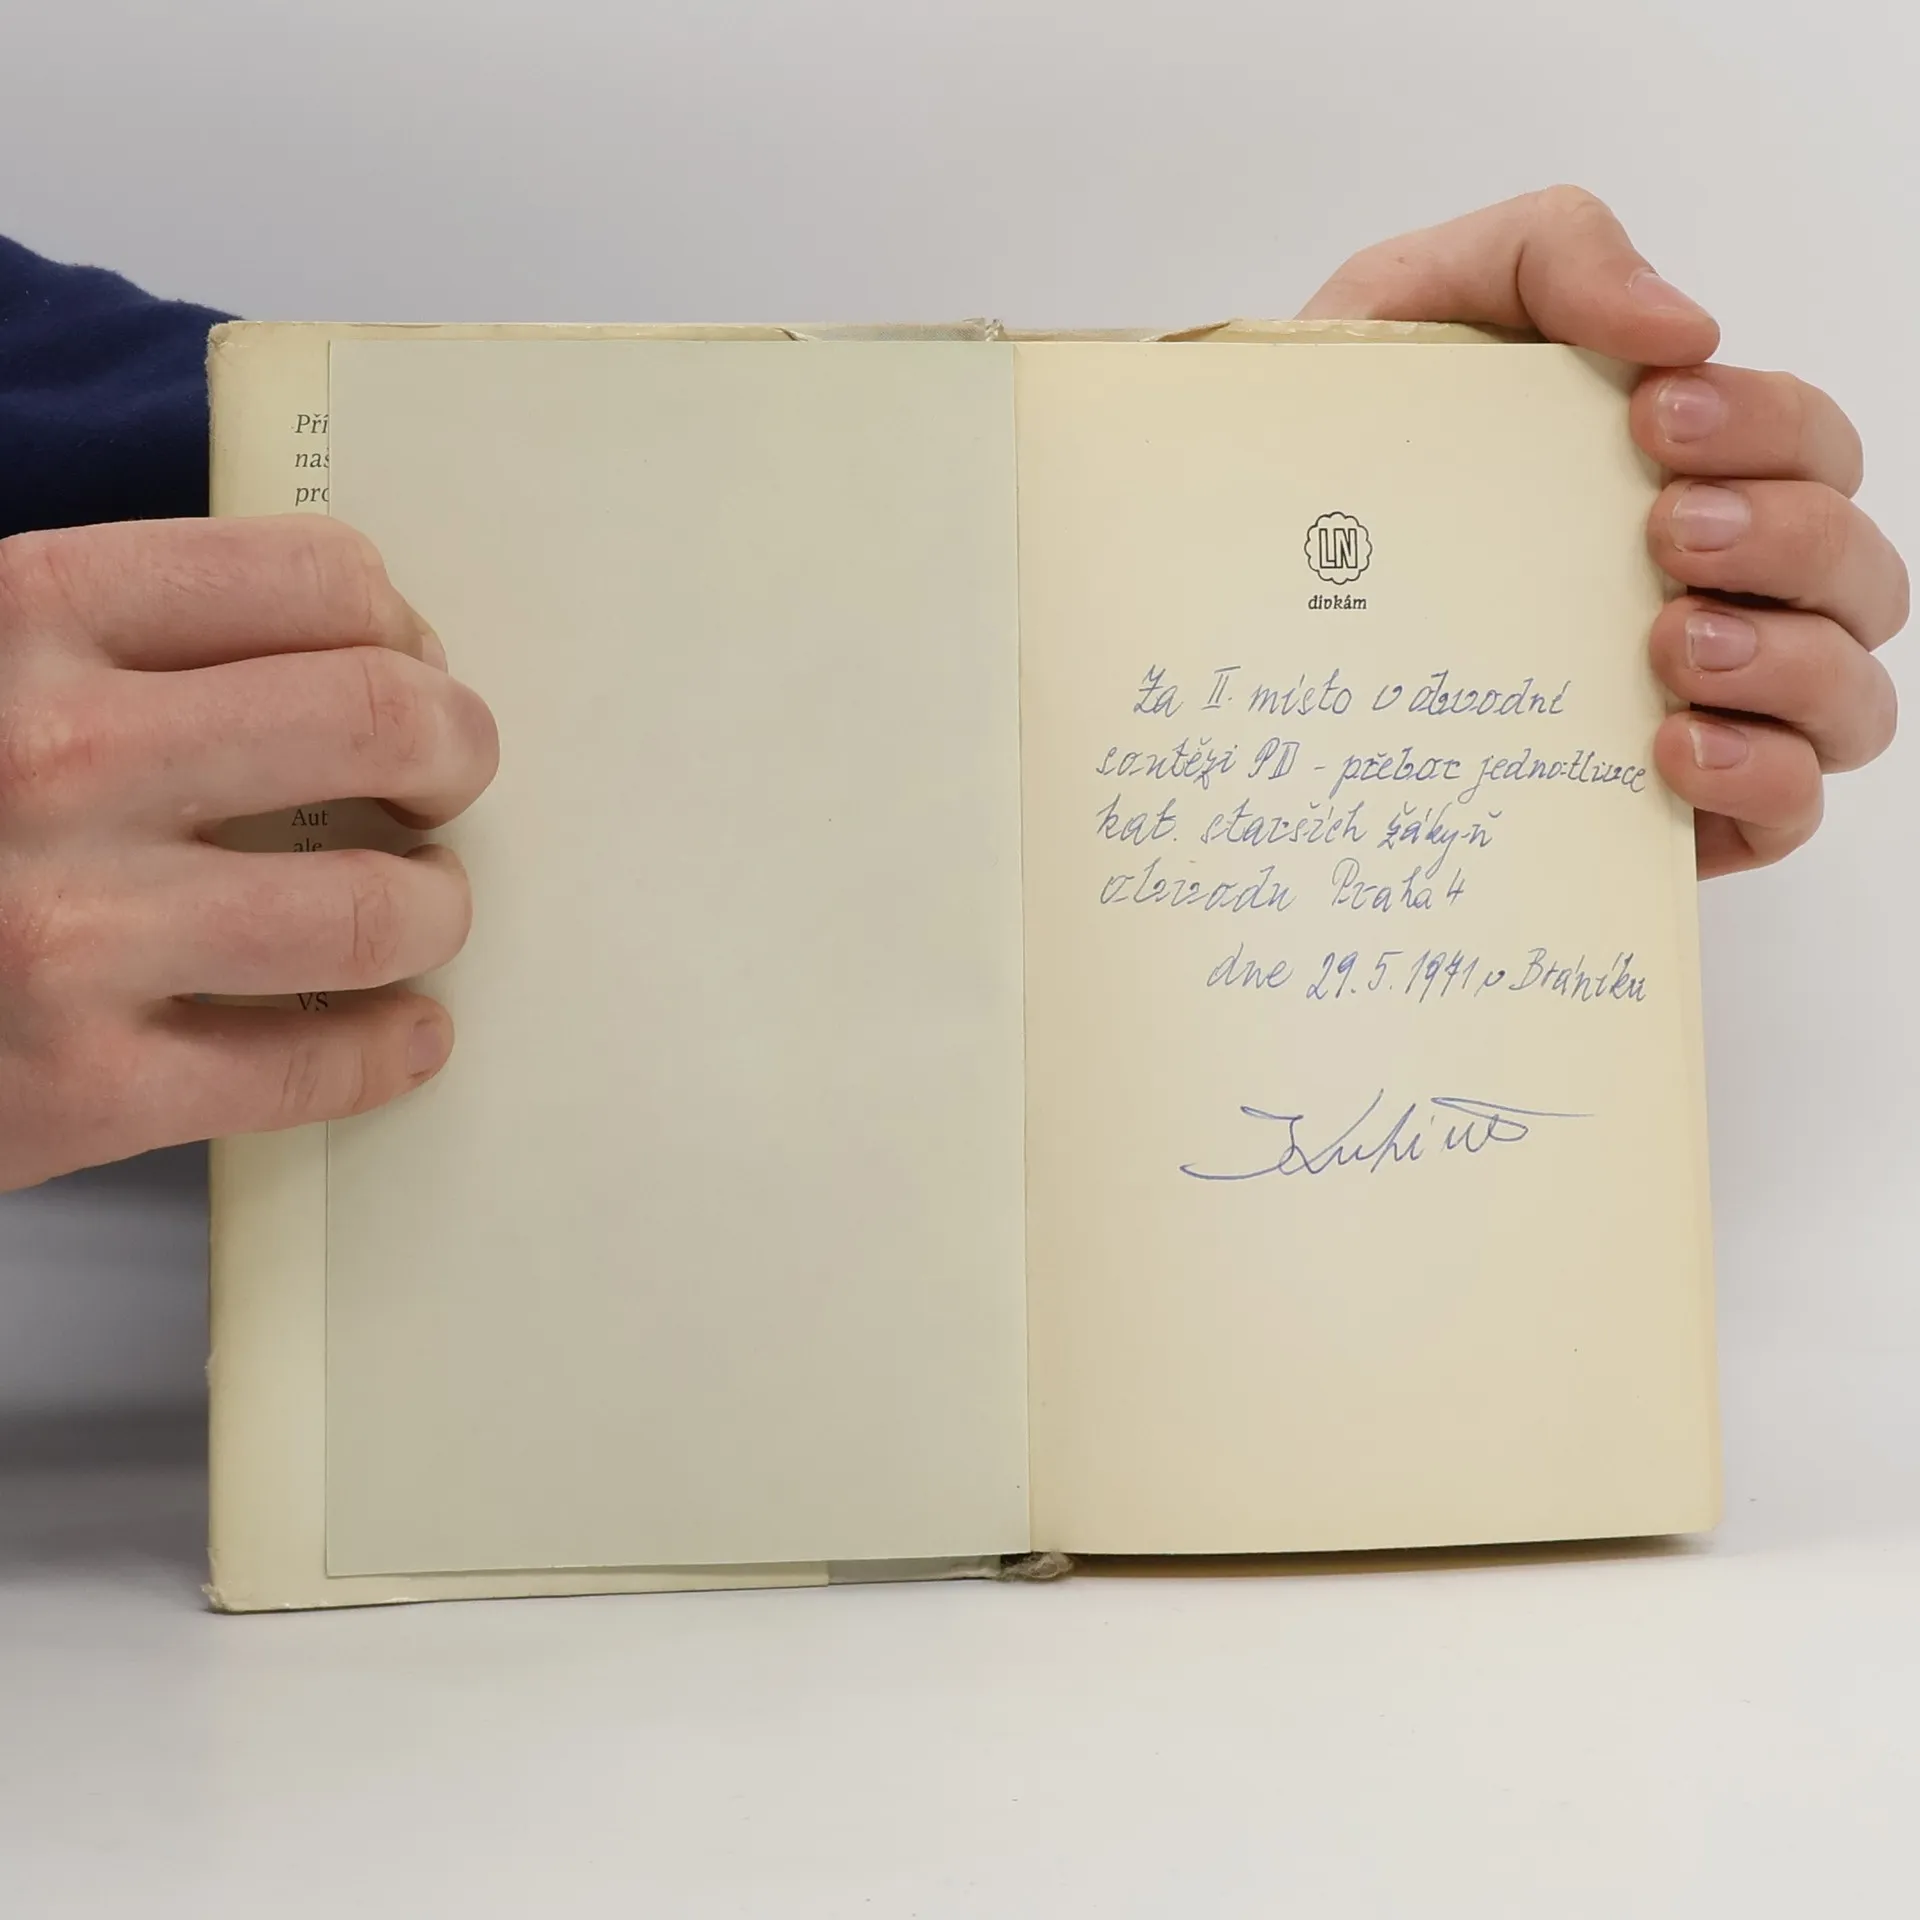 Pří
naš
pro
Aut
ale
VŠ
LN
dívkám
Za II. místo v obvodní
soutěži PD - přebor jednotlivce
kat. starších žákyň
obvodu Praha 4
dne 29.5.1971 v Bráníku